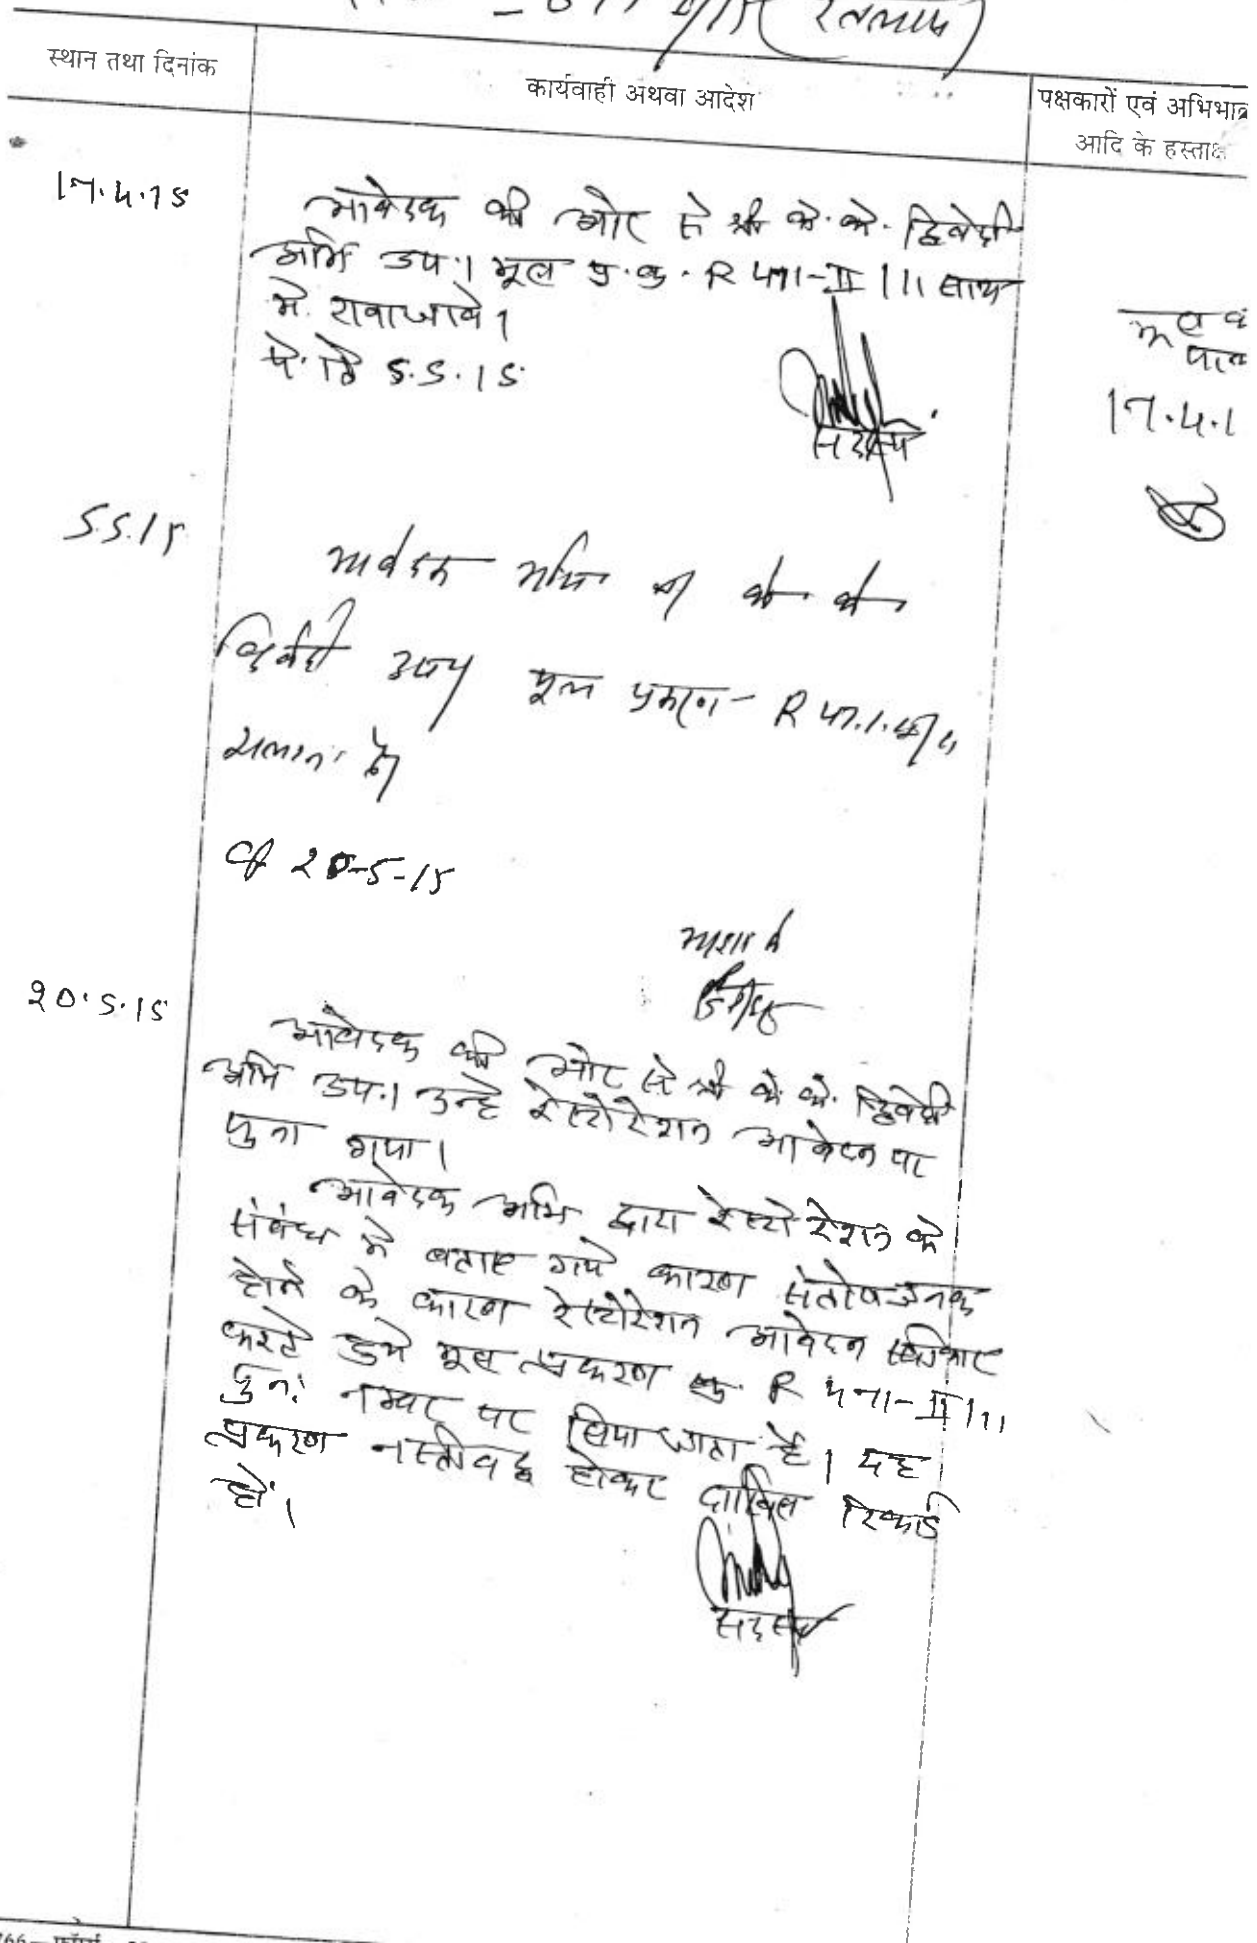 (रतलाम)
स्थान तथा दिनांक
कार्यवाही अथवा आदेश
पक्षकारों एवं अभिभाव
आदि के हस्ताक्ष
17.4.15
आवेदक की ओर से श्री के.के. द्विवेदी
अभि उप.। मूल प्र.क्र. R 471-II/11 साथ
मे रखा जावे।
पे. दि 5.5.15
सदस्य
17.4.1
5.5.15
आवेदक अभि श्री के. के.
द्विवेदी उप मूल प्रकरण- R 471.
संलग्न हो
20-5-15
20.5.15
आवेदक की ओर से श्री के. के. द्विवेदी
अभि उप.। उन्हे रेस्टोरेशन आवेदन पर
सुना गया।
आवेदक अभि द्वारा रेस्टोरेशन के
संबंध मे बताए गये कारण संतोषजनक
होने के कारण रेस्टोरेशन आवेदन स्वीकार
करते हुये मूल प्रकरण क्र. R 471-II/11
पुनः नम्बर पर लिया जाता है। यह
प्रकरण नस्तीबद्ध होकर दाखिल रिकार्ड
हो।
सदस्य